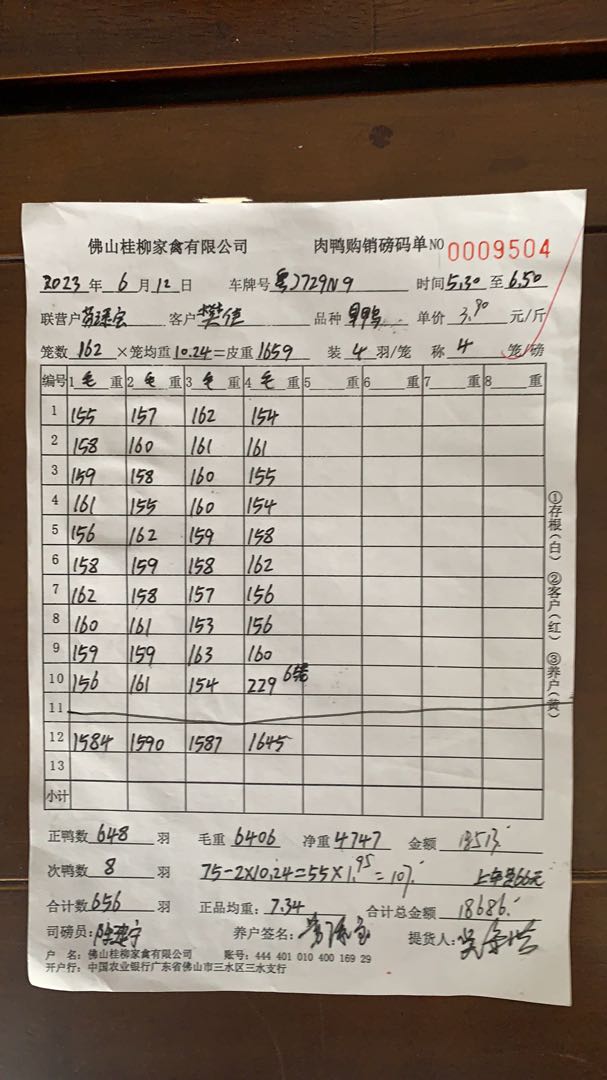 佛山桂柳家禽有限公司 肉鸭购销磅码单 NO 0009504
2023 年 6 月 12 日 车牌号 粤J729N9 时间 5.30 至 6.50
联营户 客户 樊佳 品种 单价 3.90 元/斤
笼数 162 ×笼均重 10.24=皮重 1659 装 4 羽/笼 称 4 笼/磅
编号 1 毛 重 2 毛 重 3 毛 重 4 毛 重 5 重 6 重 7 重 8 重
1 155 157 162 154
2 158 160 161 161
3 159 158 160 155
4 161 155 160 154
5 156 162 159 158
6 158 159 158 162
7 162 158 157 156
8 160 161 153 156
9 159 159 163 160
10 156 161 154 229 6笼
11
12 1584 1590 1587 1645
13
小计
①存根(白) ②客户(红) ③养户(黄)
正鸭数 648 羽 毛重 6406 净重 4747 金额 18513
次鸭数 8 羽 75-2×10.24=55×1.95=107. 上车费66元
合计数 656 羽 正品均重: 7.34 合计总金额 18686.
司磅员: 养户签名: 提货人:
户 名: 佛山桂柳家禽有限公司 账号: 444 401 010 400 169 29
开户行: 中国农业银行广东省佛山市三水区三水支行